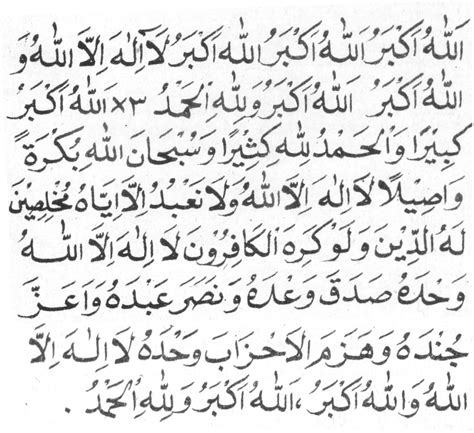 اَللهُ اَكْبَرُ اَللهُ اَكْبَرُ اَللهُ اَكْبَرُ لَآاِلٰهَ اِلَّا اللهُ وَ
اللهُ اَكْبَرُ اَللهُ اَكْبَرُ وَلِلّٰهِ الْحَمْدُ ×٣ اَللهُ اَكْبَرُ
كَبِيْرًا وَالْحَمْدُ لِلّٰهِ كَثِيْرًا وَسُبْحَانَ اللهِ بُكْرَةً
وَاَصِيْلًا لَااِلٰهَ اِلَّا اللهُ وَلَا نَعْبُدُ اِلَّا اِيَّاهُ مُخْلِصِيْنَ
لَهُ الدِّيْنَ وَلَوْكَرِهَ الْكَافِرُوْنَ لَا اِلٰهَ اِلَّا اللهُ
وَحْدَهُ صَدَقَ وَعْدَهُ وَنَصَرَ عَبْدَهُ وَاَعَزَّ
جُنْدَهُ وَهَزَمَ الْاَحْزَابَ وَحْدَهُ لَا اِلٰهَ اِلَّا
اللهُ وَاللهُ اَكْبَرُ ، اَللهُ اَكْبَرُ وَلِلّٰهِ الْحَمْدُ .